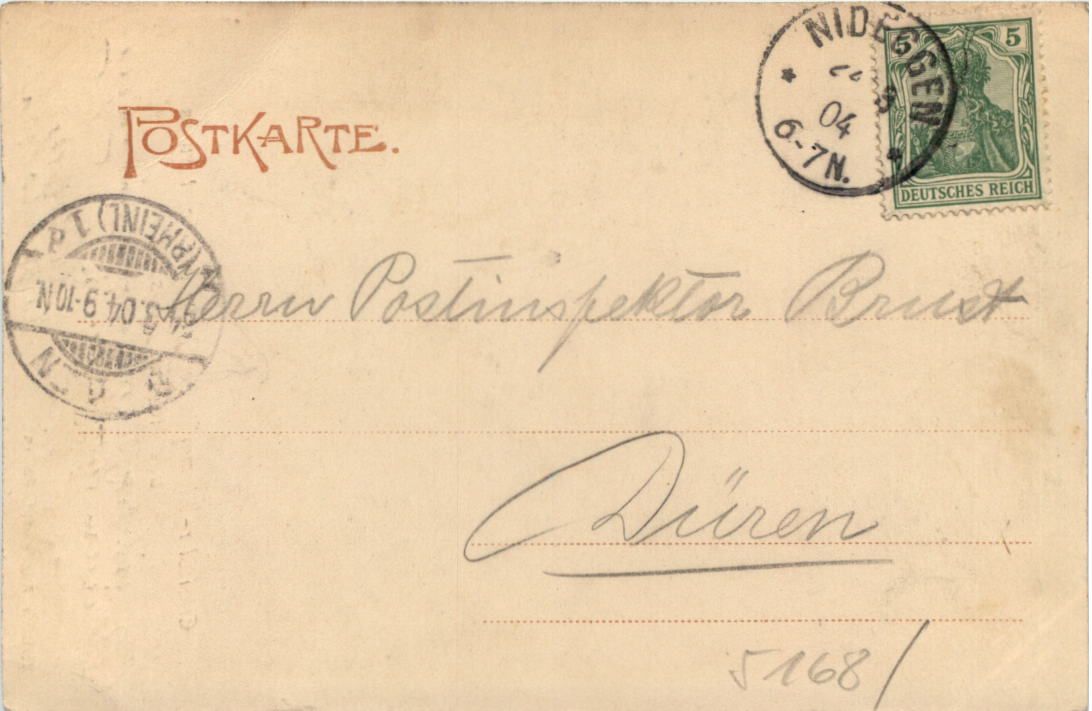 POSTKARTE.
NIDEGGEN
04
6-7N.
5 5
DEUTSCHES REICH
(RHEINL) 1 d
3.04. 9-10N.
Herrn Postinspektor Brust
Düren
5168/